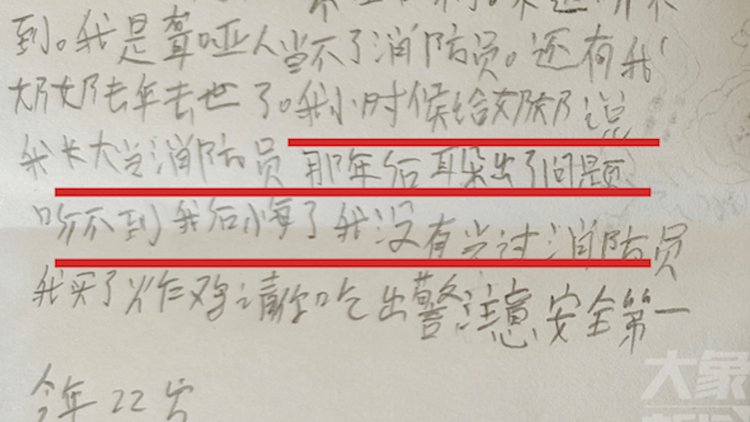 到。我是聋哑人当不了消防员。还有我
奶奶去年去世了。我小时候给奶奶说
我长大当消防员 那年后耳朵出了问题
听不到我后悔了我没有当过消防员
我买了炸鸡请你吃出警注意安全第一
今年22岁
大象